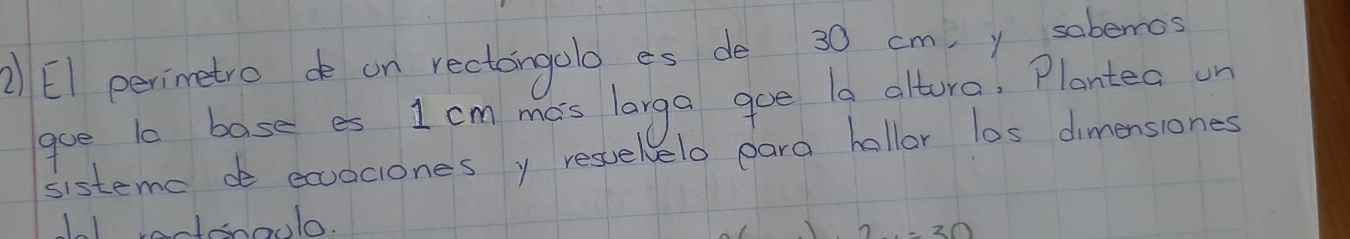 2) El perimetro de un rectángulo es de 30 cm, y sabemos
que la base es 1 cm más larga que la altura, Plantea un
sistema de ecuaciones y resuelvelo para hallar las dimensiones
del rectángulo.
= 30